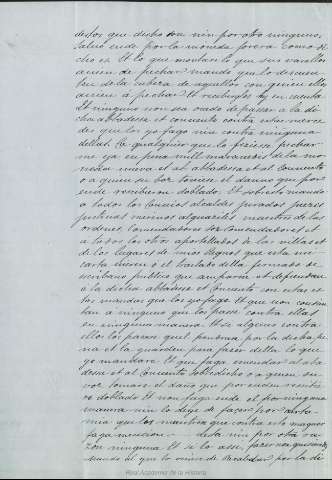 destos que dicho son nin por otro ninguno,
salvo ende por la moneda forera como di
cho es. Et lo que montare lo que sus vasallos
ovieren de pechar mando que lo descuen
ten de la cabeza de aquellos con quien ellos
ovieren á pechar. Et recibanlo en cuenta
Et ninguno non sea osado de pasar a la di
cha abbadessa et convento contra estas merce
des que les yo fago nin contra ninguna
dellas. Ca qualquier que lo fiziesse pechar
me ya en pena mill maravedis de la mo
neda nueva et al abbadessa et al Convento
o a quien su voz toviere el danno que por
ende recibiesen doblado. Et sobresto mando
a todos los Concejos alcaldes jurados jueces
justicias merinos alguaciles maestres de las
ordenes, Comendadores Sozcomendadores et
a todos los otros aportellados de las villas et
de los lugares de mios Regnos que esta mi
carta vieren o el traslado della firmado de
escribano publico que amparen et defiendan
a la dicha abbadesa et Convento con estas et
tas mercedes que les yo fago. Et que non consien
tan a ninguno que les passe contra ellas
en ninguna manera. Et si alguno contra
ellos les passare quel pendren por la dicha pe
na et la guarden para facer della lo que
yo mandare. Et que faga emendar al abba
desa et al Convento sobredicho o a quien su
voz tomare el daño que por ende recibie
re doblado. Et non faga ende al por ninguna
manera nin lo dexe de facer por carta
mia que les muestren que contra esto maguer
faga mencion desta nin por otra ra
zon ninguna. Et si lo assi facer non quisiere
mando al que lo oviere de recabdar por la di
Real Academia de la Historia